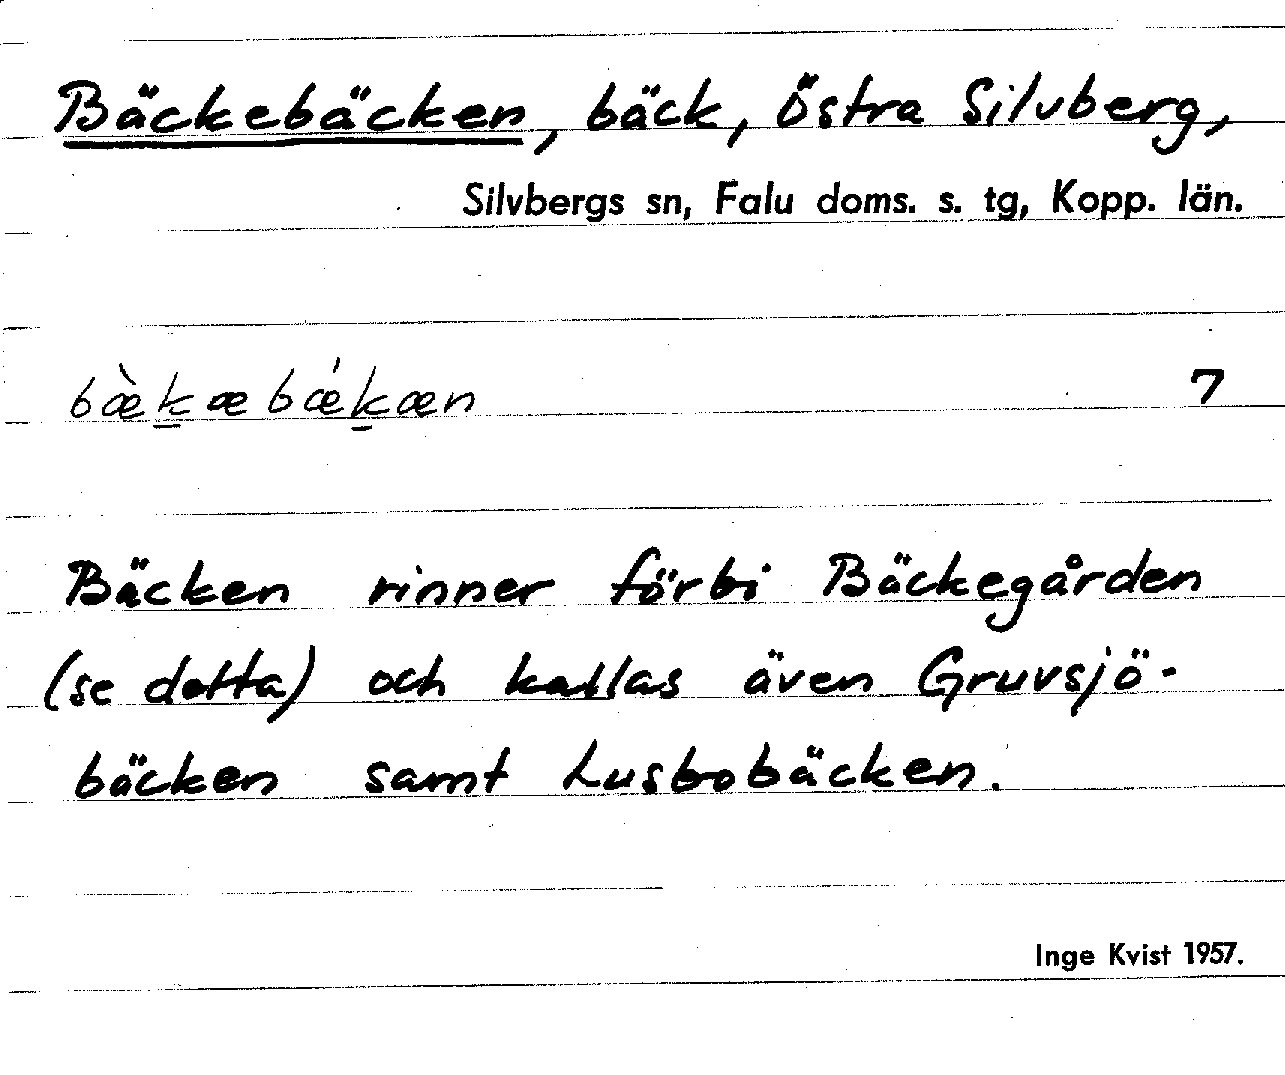 Bäckebäcken, bäck, Östra Silvberg,
Silvbergs sn, Falu doms. s. tg, Kopp. län.
bæ̀k̠æbǽk̠æn 7
Bäcken rinner förbi Bäckegården
(se detta) och kallas även Gruvsjö-
bäcken samt Lusbobäcken.
Inge Kvist 1957.